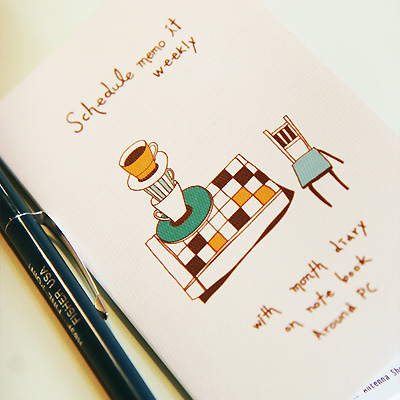 Schedule memo it
weekly
with month diary
on note book
Around PC
Antenna Sh
FISHER USA